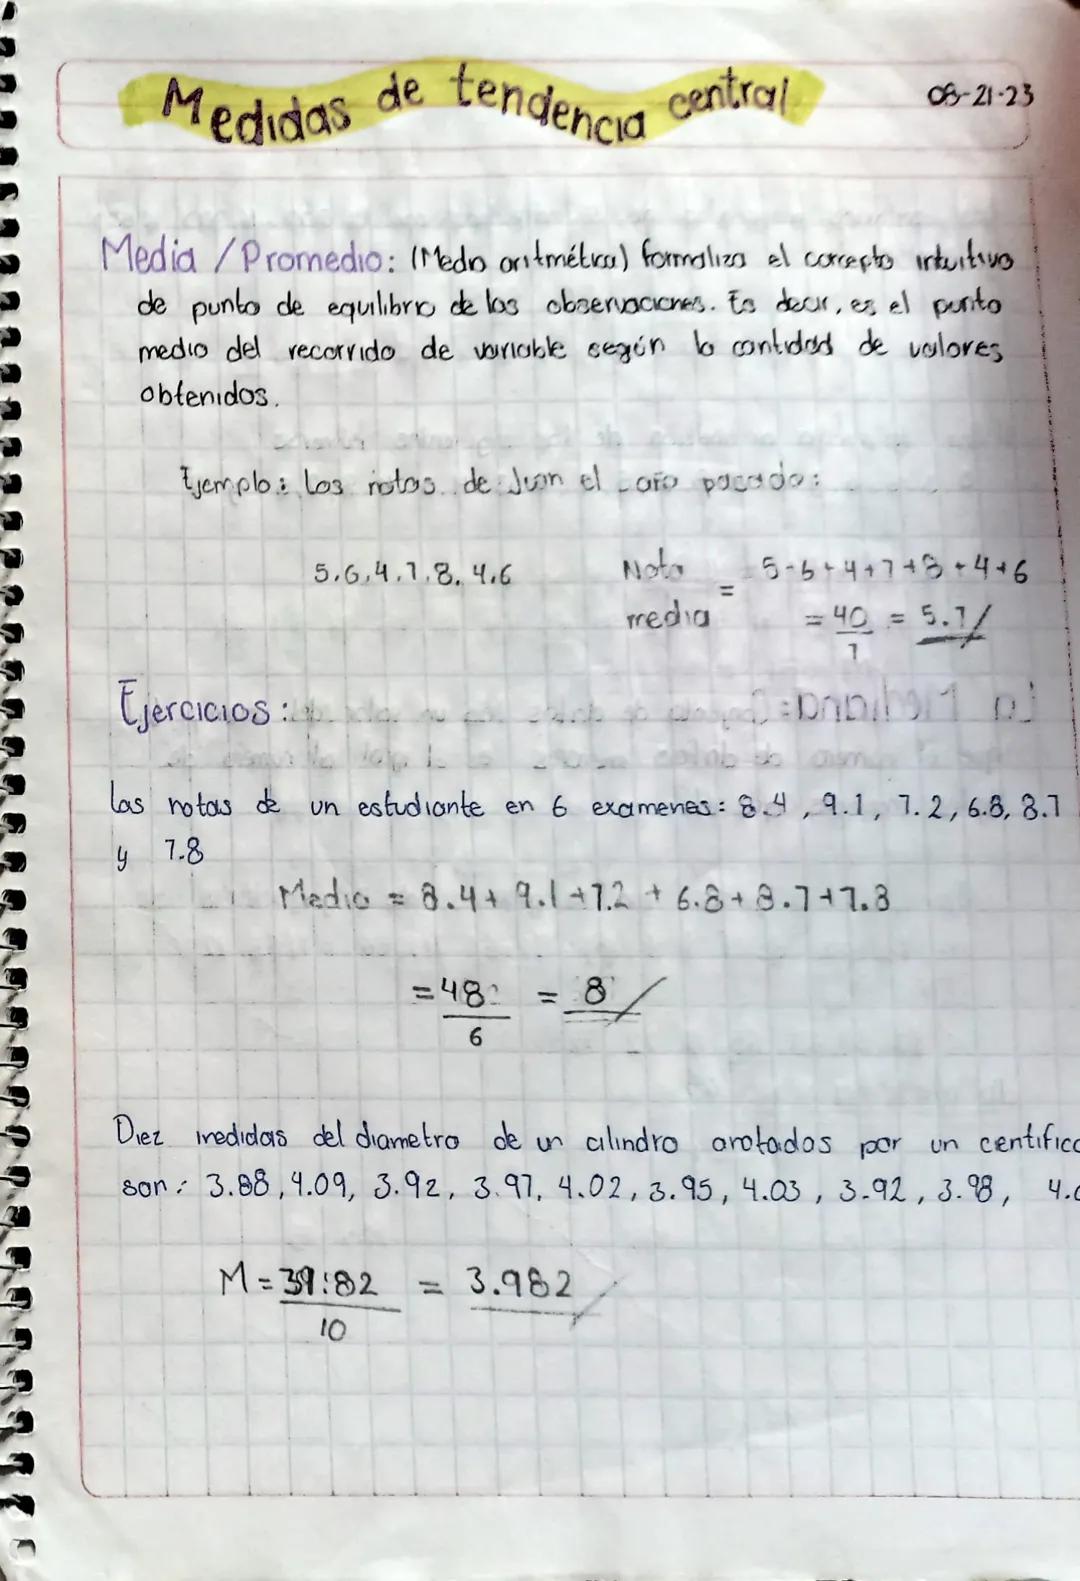 Medidas de tendencia central 08-21-23
Media / Promedio: (Media aritmética) formaliza el concepto intuitivo
de punto de equilibrio de las observaciones. Es decir, es el punto
medio del recorrido de variable según la cantidad de valores
obtenidos.
Ejemplo: Los notas de Juan el año pasado:
5,6,4,7,8,4,6
Nota media = 5+6+4+7+8+4+6
= 40/7 = 5.7
Ejercicios:
las notas de un estudiante en 6 examenes: 8.4, 9.1, 7.2, 6.8, 8.7
y 7.8
Media = 8.4+9.1+7.2+6.8+8.7+7.8
= 48/6 = 8
Diez medidas del diametro de un cilindro anotados por un centifico
son: 3.88, 4.09, 3.92, 3.97, 4.02, 3.95, 4.03, 3.92, 3.98,
M = 39.82/10 = 3.982